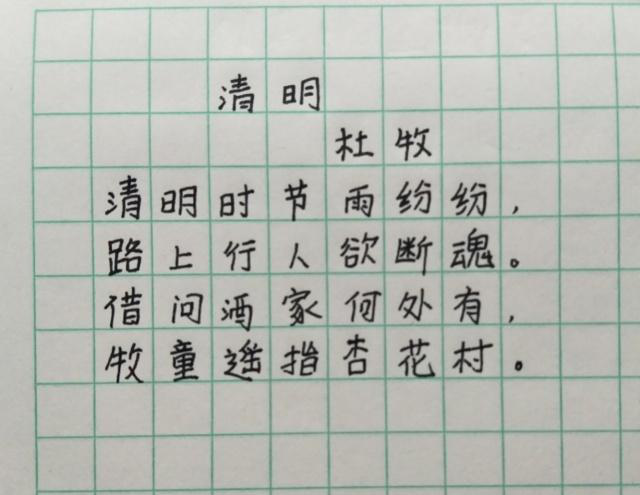 清明
杜牧
清明时节雨纷纷,
路上行人欲断魂。
借问酒家何处有,
牧童遥指杏花村。